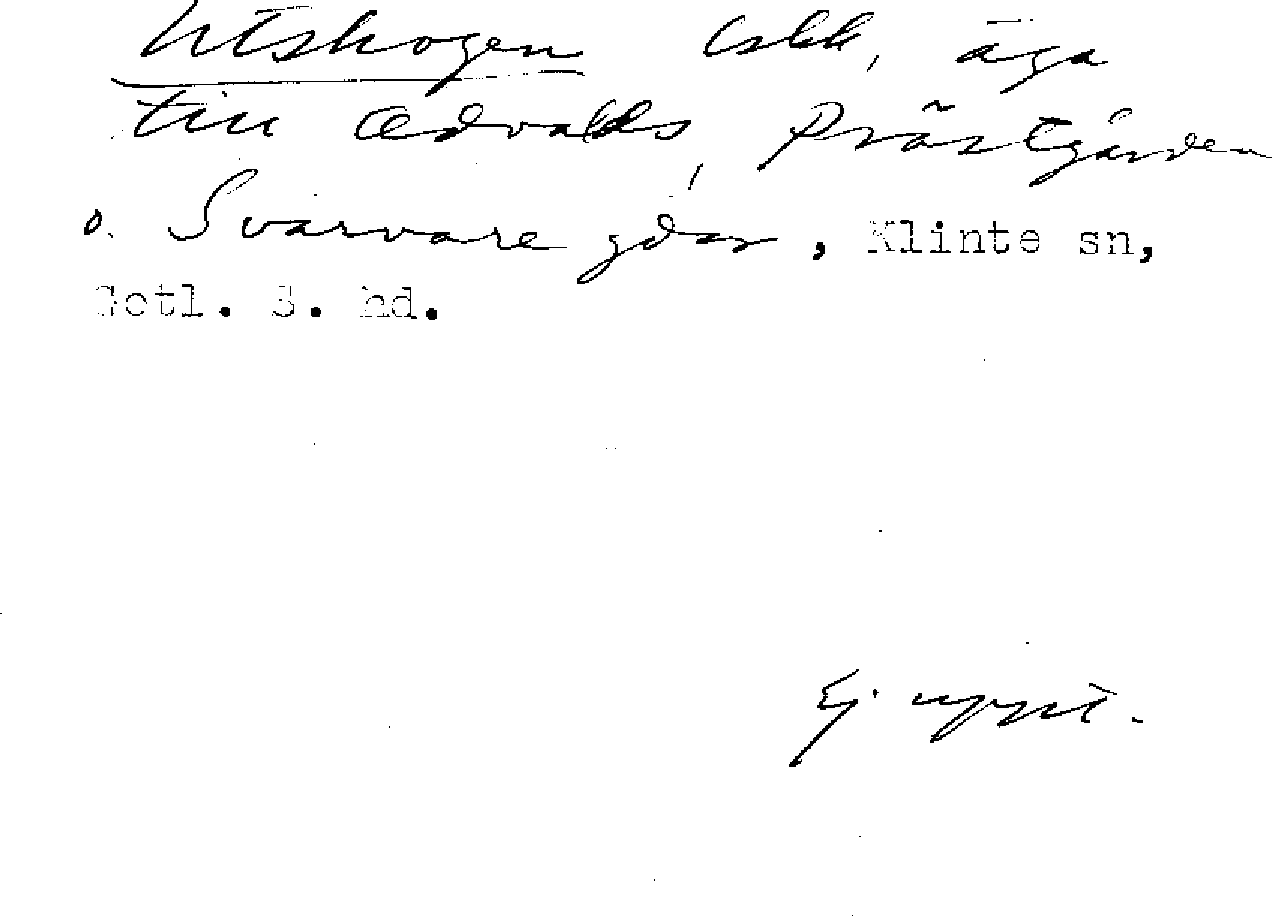 Utskogen Cskk, äga
till Odvalds, Prästgården
o. Svarvare gdar, Klinte sn,
Gotl. S. hd.
Ej uppt.